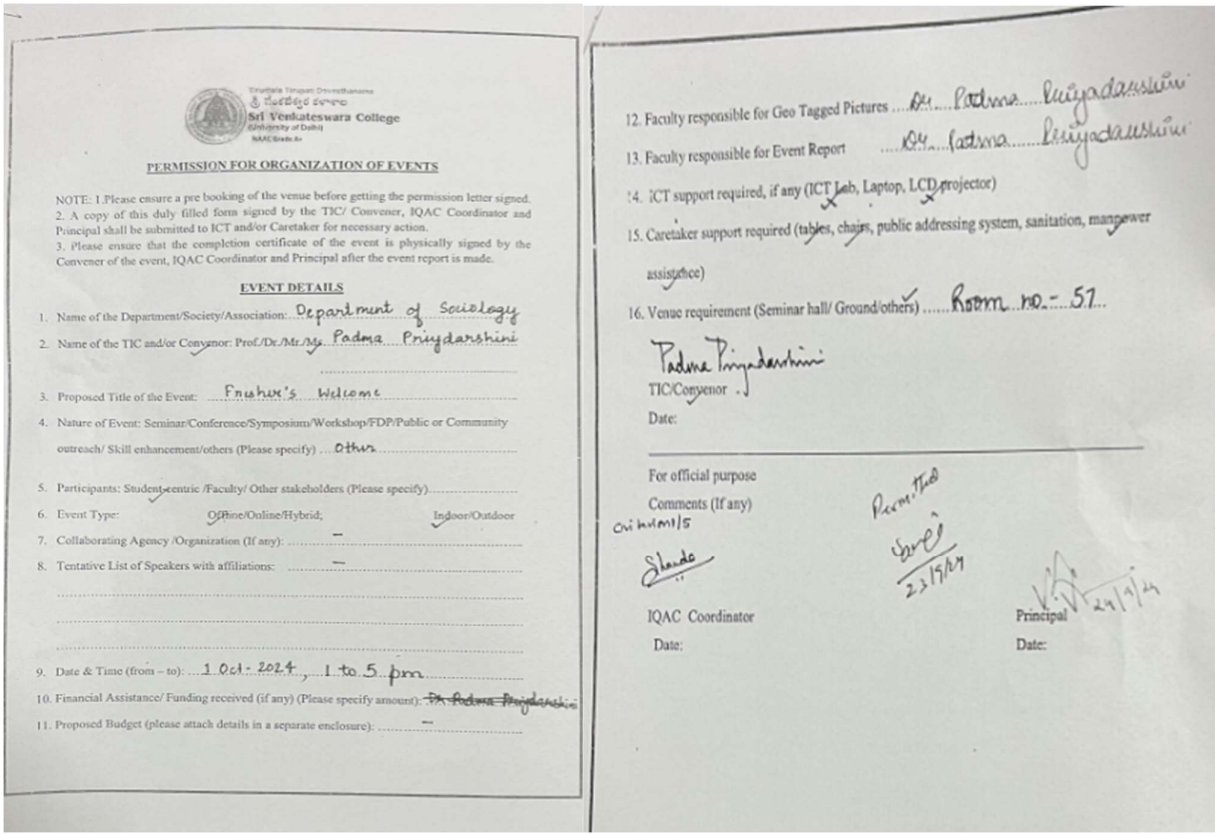 Tirumala Tirupati Devasthanams
శ్రీ వేంకటేశ్వర కళాశాల
Sri Venkateswara College
(University of Delhi)
NAAC Grade A+
PERMISSION FOR ORGANIZATION OF EVENTS
NOTE: 1.Please ensure a pre booking of the venue before getting the permission letter signed.
2. A copy of this duly filled form signed by the TIC/ Convener, IQAC Coordinator and
Principal shall be submitted to ICT and/or Caretaker for necessary action.
3. Please ensure that the completion certificate of the event is physically signed by the
Convener of the event, IQAC Coordinator and Principal after the event report is made.
EVENT DETAILS
1. Name of the Department/Society/Association: Department of Sociology
2. Name of the TIC and/or Convenor: Prof./Dr./Mr./Ms. Padma Priydarshini
3. Proposed Title of the Event: Fresher's Welcome
4. Nature of Event: Seminar/Conference/Symposium/Workshop/FDP/Public or Community
outreach/ Skill enhancement/others (Please specify) ... Other
5. Participants: Student-centric /Faculty/ Other stakeholders (Please specify)
6. Event Type: Offline/Online/Hybrid; Indoor/Outdoor
7. Collaborating Agency /Organization (If any): –
8. Tentative List of Speakers with affiliations: –
9. Date & Time (from – to): 1 Oct - 2024, 1 to 5 pm
10. Financial Assistance/ Funding received (if any) (Please specify amount): Dr Padma Priydarshini
11. Proposed Budget (please attach details in a separate enclosure): –
12. Faculty responsible for Geo Tagged Pictures ... Dr. Padma Priyadarshini
13. Faculty responsible for Event Report ... Dr. Padma Priyadarshini
14. ICT support required, if any (ICT Lab, Laptop, LCD projector)
15. Caretaker support required (tables, chairs, public addressing system, sanitation, manpower
assistance)
16. Venue requirement (Seminar hall/ Ground/others) ...... Room no. - 57
Padma Priyadarshini
TIC/Convenor
Date:
For official purpose
Comments (If any)
Permitted
23/9/24
24/9/24
IQAC Coordinator
Principal
Date:
Date: